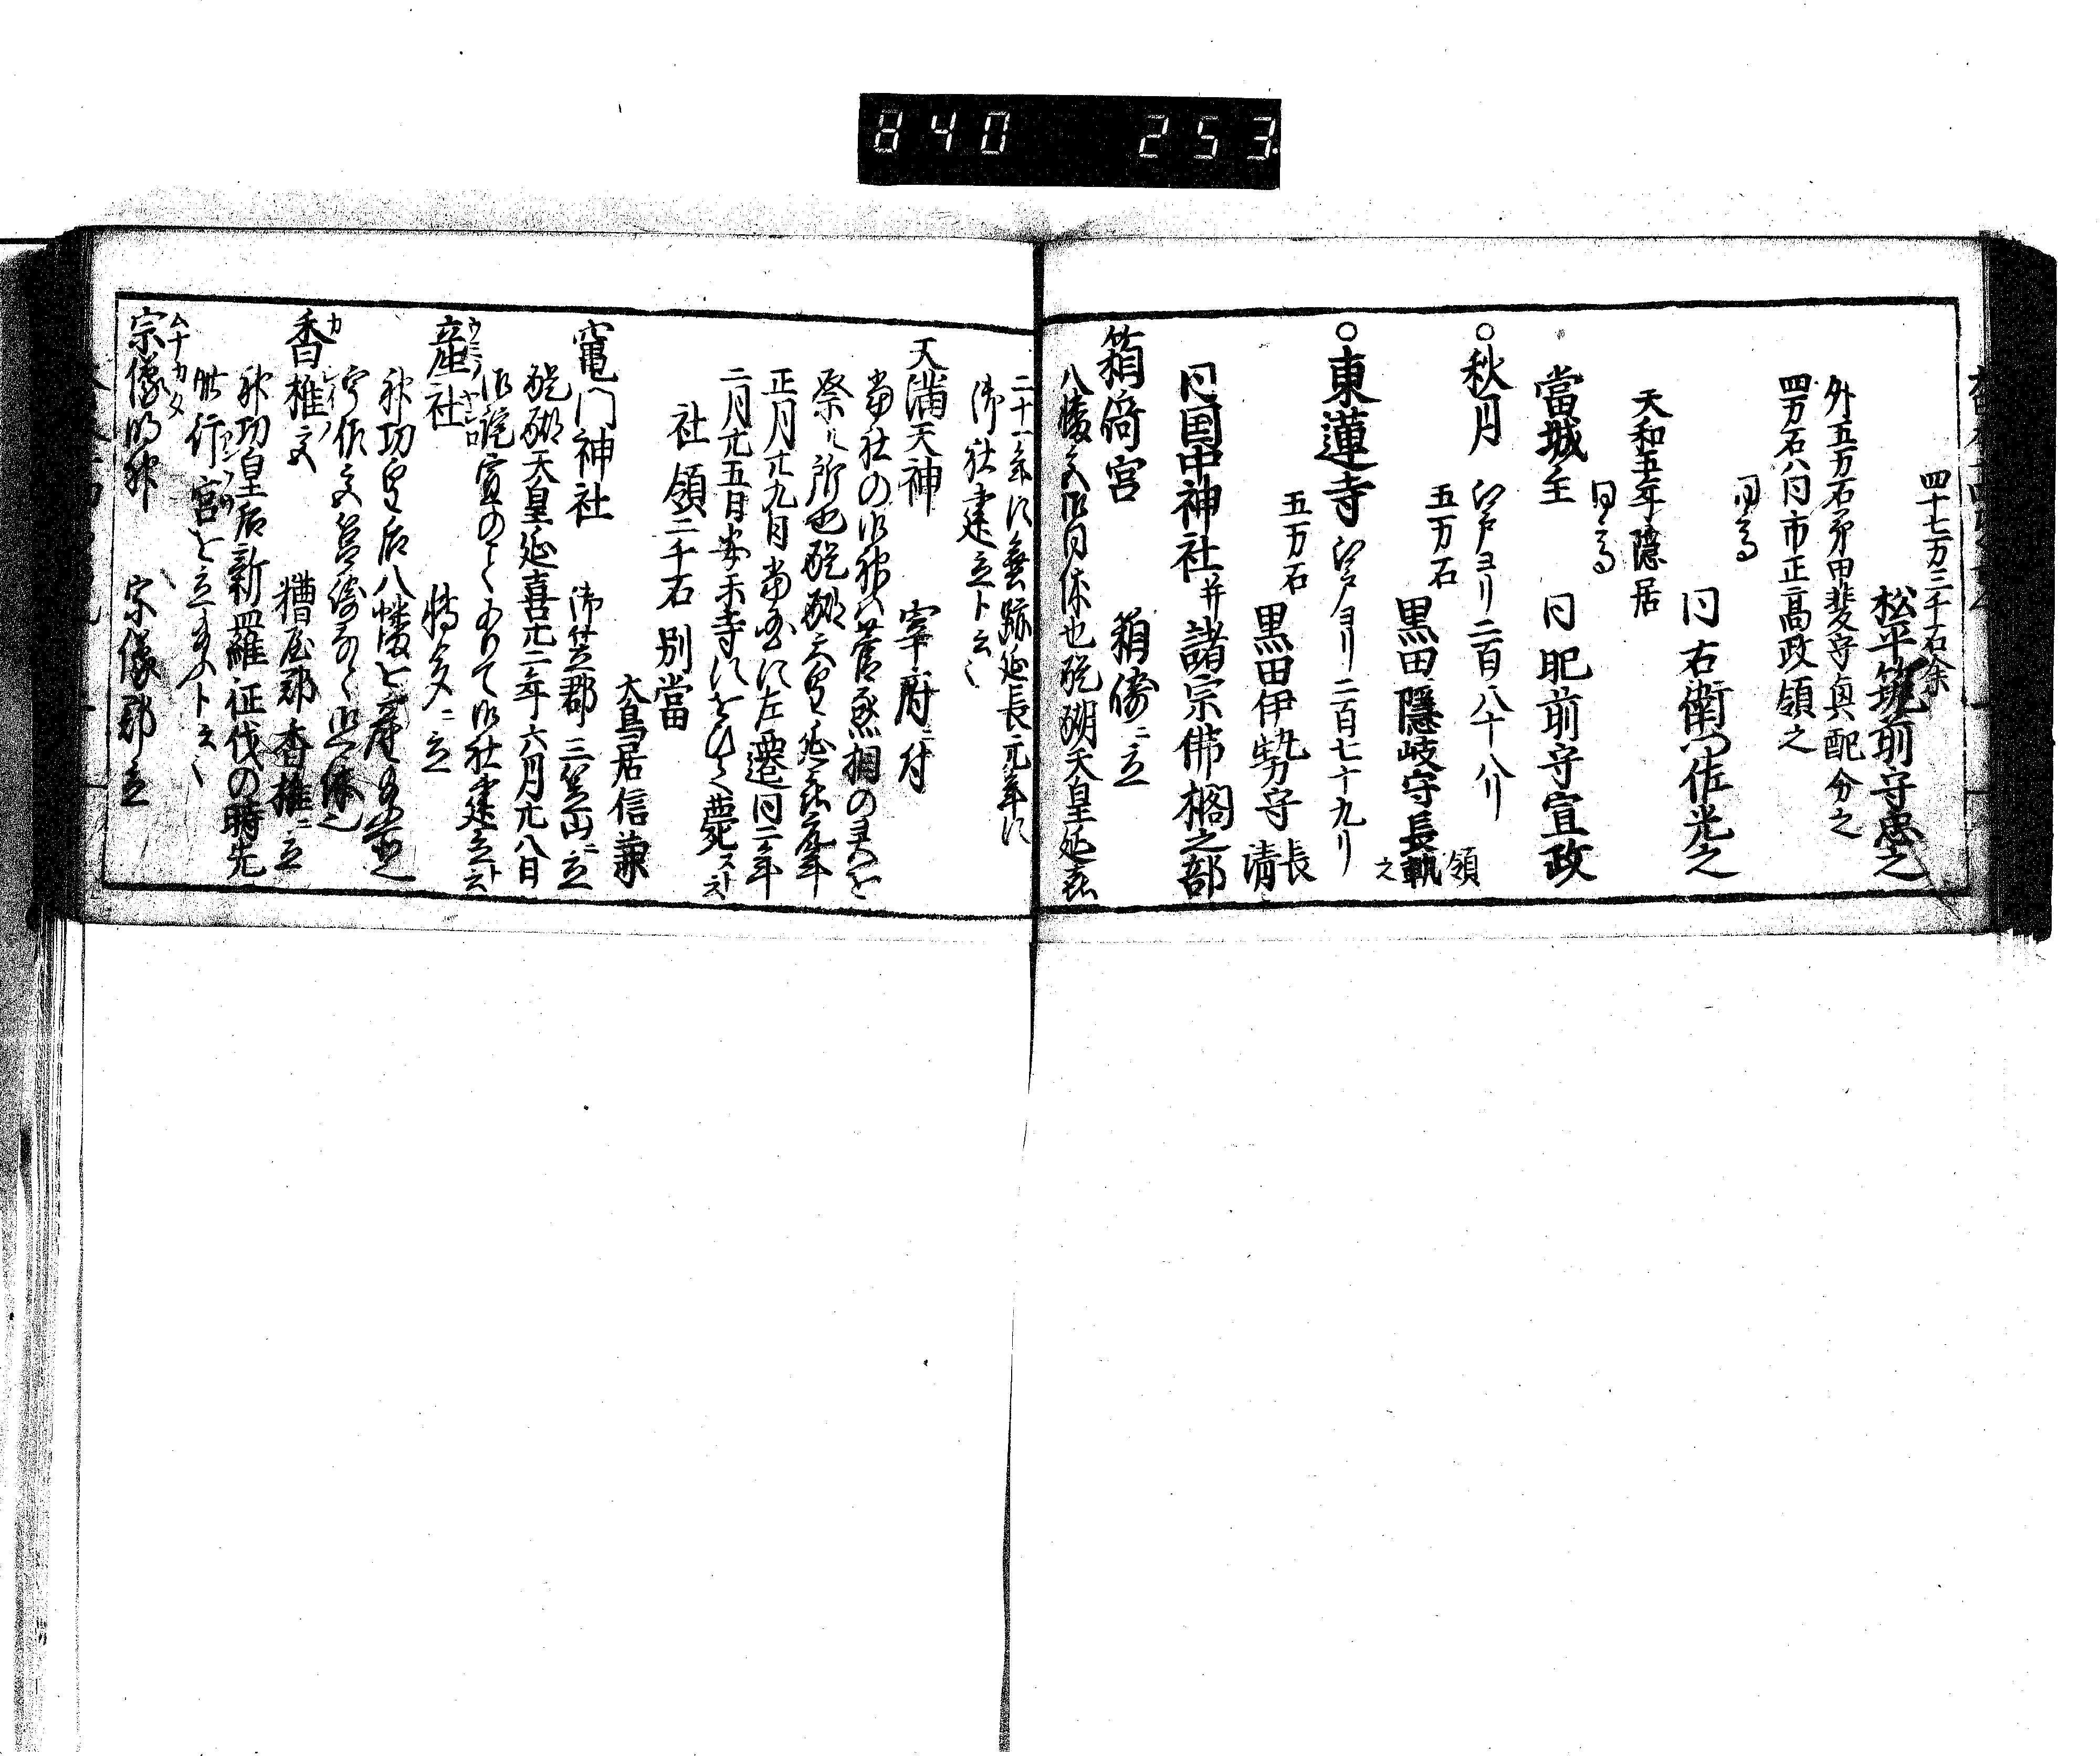 840 253
四十七万三千石余
松平筑前守忠之
外五万石弟甲斐守与配分之
四万石八同市正高政領之
同高
同右衛門佐光之
天和五年隠居
同高
當城主 同肥前守宣政
○秋月 江戸ヨリ二百八十八リ
五万石 黒田隠岐守長軌 領之
○東蓮寺 江戸ノヨリ二百七十九リ
五万石 黒田伊勢守長清
同国中神社并諸宗佛閣之部
箱﨑宮 箱崎ニ立
八幡宮御同体也醍醐天皇延喜
二十一年に垂跡延長元年に
御社建立ト云〻
天満天神 宰府ニ付
當社の御神ハ菅丞相の霊を
祭ル所也醍醐天皇延喜元年
正月廿九日當所に左遷同二年
二月廿五日安樂寺にをひて薨スト云
社領二千石 別當
大鳥居信兼
竈門神社 御笠郡三笠山ニ立
醍醐天皇延喜元二年六月廿八日
御託宣のことありて御社建立ト云
産社 博多ニ立
神功皇后八幡を産給
香椎宮 糟屋郡香椎ニ立
神功皇后新羅征伐の時先
此行宮を立給フト云〻
宗像明神 宗像郡立